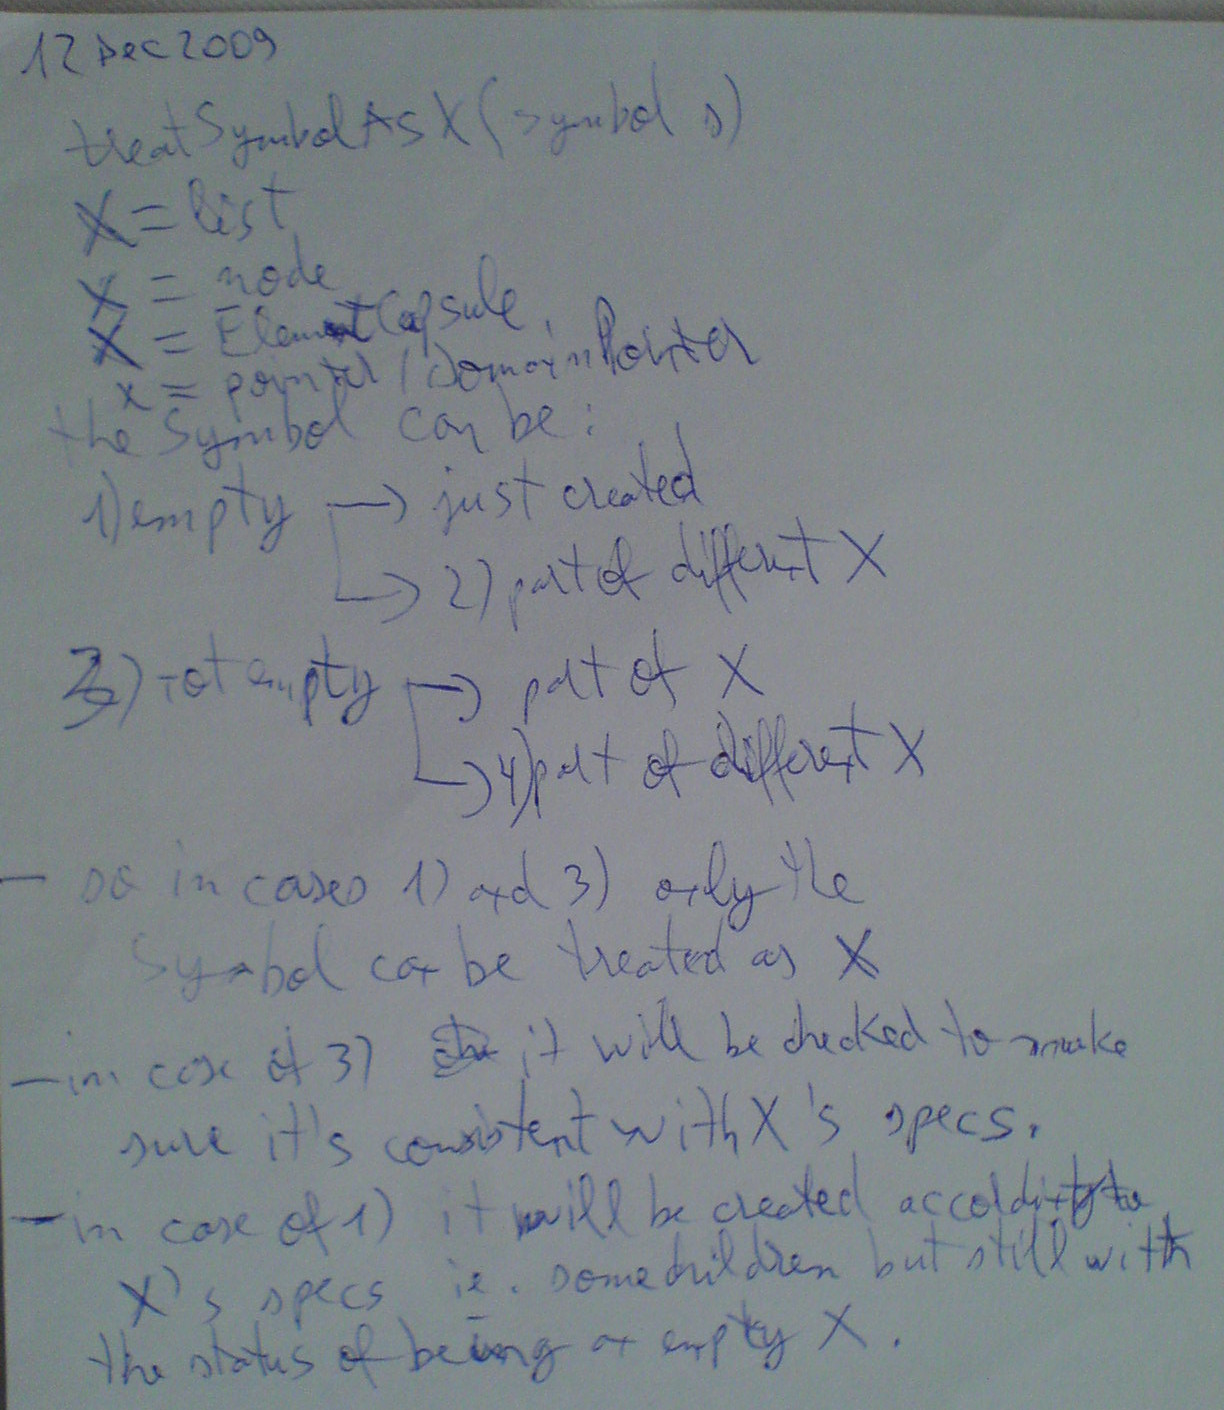 12 Dec 2009
treatSymbolAsX(symbol s)
X = list
X = node
X = ElementCapsule
x = pointer / DomainPointer
the Symbol can be:
1) empty → just created
→ 2) part of different X
3) not empty → part of X
→ 4) part of different X
- so in cases 1) and 3) only the
Symbol can be treated as X
- in case of 3) it will be checked to make
sure it's consistent with X's specs.
- in case of 1) it will be created according to
X's specs ie. some children but still with
the status of being an empty X.